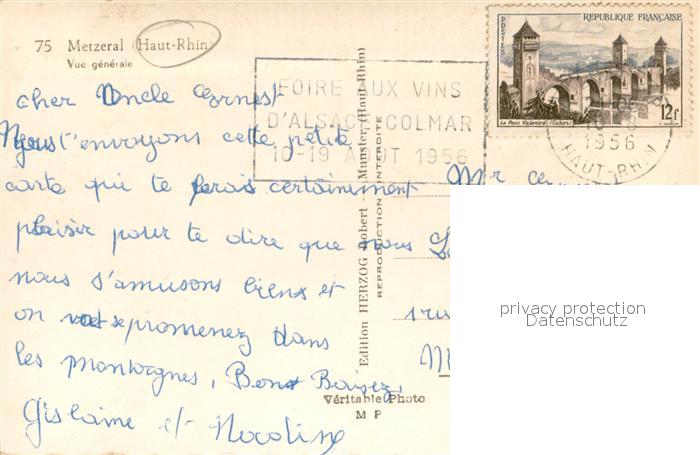 75 Metzeral (Haut-Rhin)
Vue générale
POSTES
REPUBLIQUE FRANÇAISE
Le Pont Valentré (Cahors)
12f
FOIRE AUX VINS
D'ALSACE COLMAR
10-19 AOUT 1956
1956
HAUT-RHIN
cher Oncle Ernest
Nous t'envoyons cette petite
carte qui te ferais certainement
plaisir pour te dire que nous
nous s'amusons biens et
on promenez dans
les montagnes, Bons Baisez,
Gislaine et
Edition HERZOG Robert - Munster (Haut-Rhin)
REPRODUCTION INTERDITE
Véritable Photo
M P
Mr
privacy protection
Datenschutz